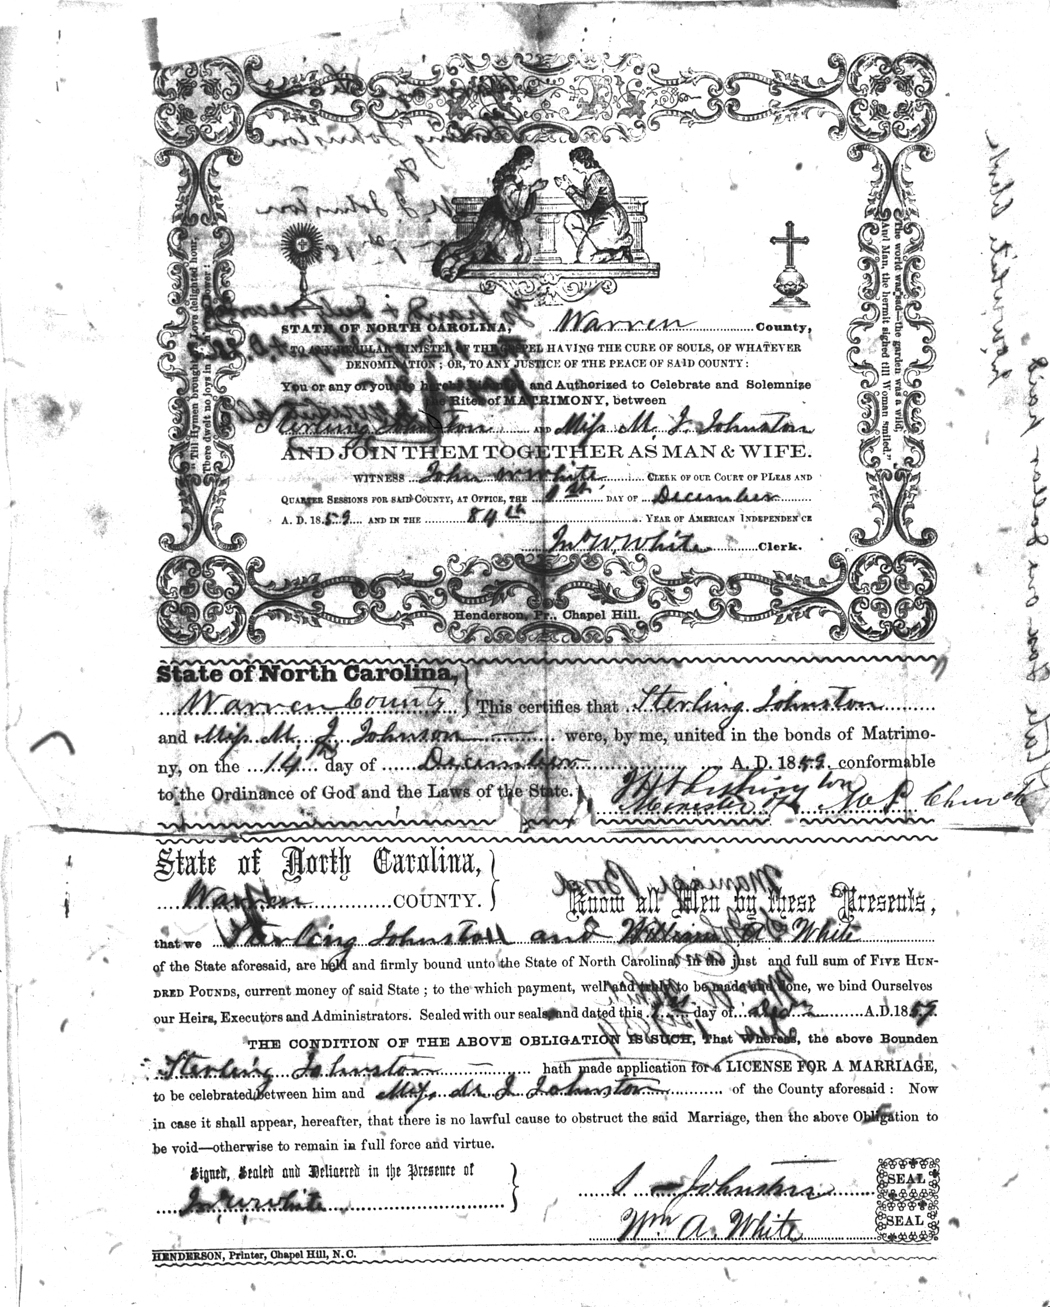 STATE OF NORTH CAROLINA, Warren County,
TO ANY REGULAR MINISTER OF THE GOSPEL HAVING THE CURE OF SOULS, OF WHATEVER
DENOMINATION; OR, TO ANY JUSTICE OF THE PEACE OF SAID COUNTY:
You or any of you are hereby Licensed and Authorized to Celebrate and Solemnize
the Rites of MATRIMONY, between
Sterling Johnston AND Miss M. J. Johnston
AND JOIN THEM TOGETHER AS MAN & WIFE.
WITNESS John W. White CLERK OF OUR COURT OF PLEAS AND
QUARTER SESSIONS FOR SAID COUNTY, AT OFFICE, THE DAY OF December
A. D. 1859 AND IN THE 84th YEAR OF AMERICAN INDEPENDENCE
Jno W. White Clerk.
"Till Hymen brought his Love delighted hour,
There dwelt no joys in Eden's rosy bower:
The world was sad—the garden was a wild,
And Man, the hermit sighed till Woman smiled."
Henderson, Pr., Chapel Hill.
State of North Carolina,
Warren County } This certifies that Sterling Johnston
and Miss M. J. Johnson were, by me, united in the bonds of Matrimo-
ny, on the 14th day of December A. D. 1859. conformable
to the Ordinance of God and the Laws of the State.
Minister of Church
State of North Carolina,
Warren COUNTY. } Know all Men by these Presents,
that we Sterling Johnston and William A. White
of the State aforesaid, are held and firmly bound unto the State of North Carolina, in the just and full sum of FIVE HUN-
DRED POUNDS, current money of said State; to the which payment, well and truly to be made and done, we bind Ourselves
our Heirs, Executors and Administrators. Sealed with our seals, and dated this day of A.D. 1859.
THE CONDITION OF THE ABOVE OBLIGATION IS SUCH, That Whereas, the above Bounden
Sterling Johnston hath made application for a LICENSE FOR A MARRIAGE,
to be celebrated between him and Miss M. J. Johnston of the County aforesaid: Now
in case it shall appear, hereafter, that there is no lawful cause to obstruct the said Marriage, then the above Obligation to
be void—otherwise to remain in full force and virtue.
Signed, Sealed and Delivered in the Presence of
Jno W. White
S Johnston SEAL
Wm A. White SEAL
HENDERSON, Printer, Chapel Hill, N. C.